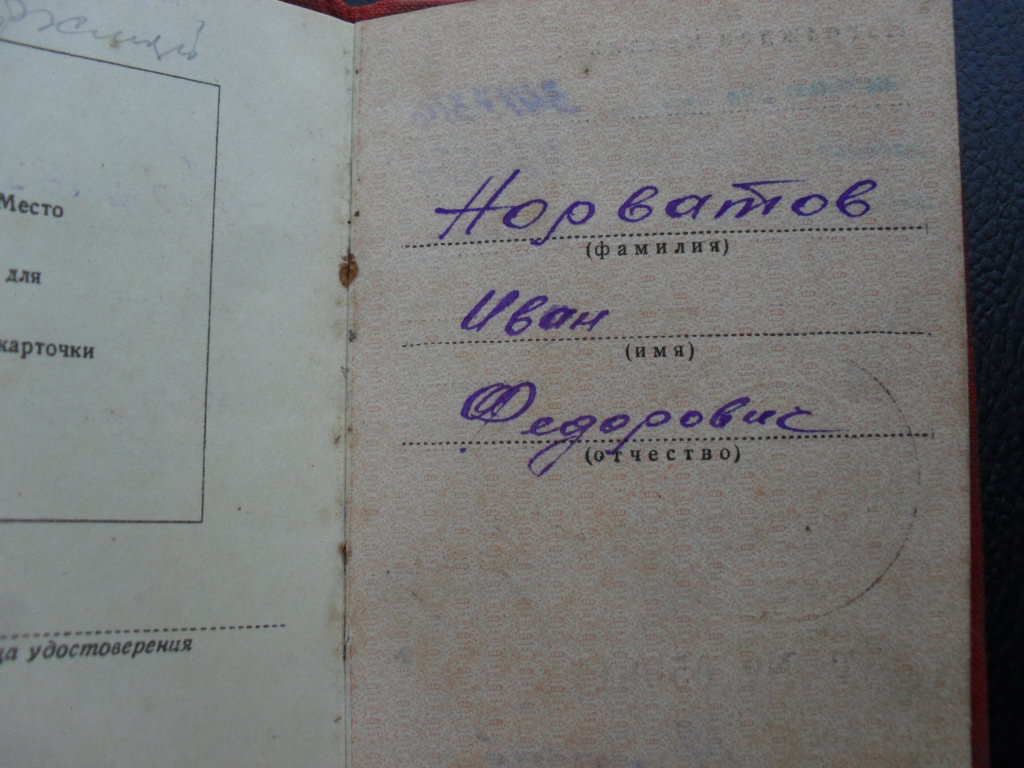 Место
для
карточки
удостоверения
Норватов
(фамилия)
Иван
(имя)
Федорович
(отчество)